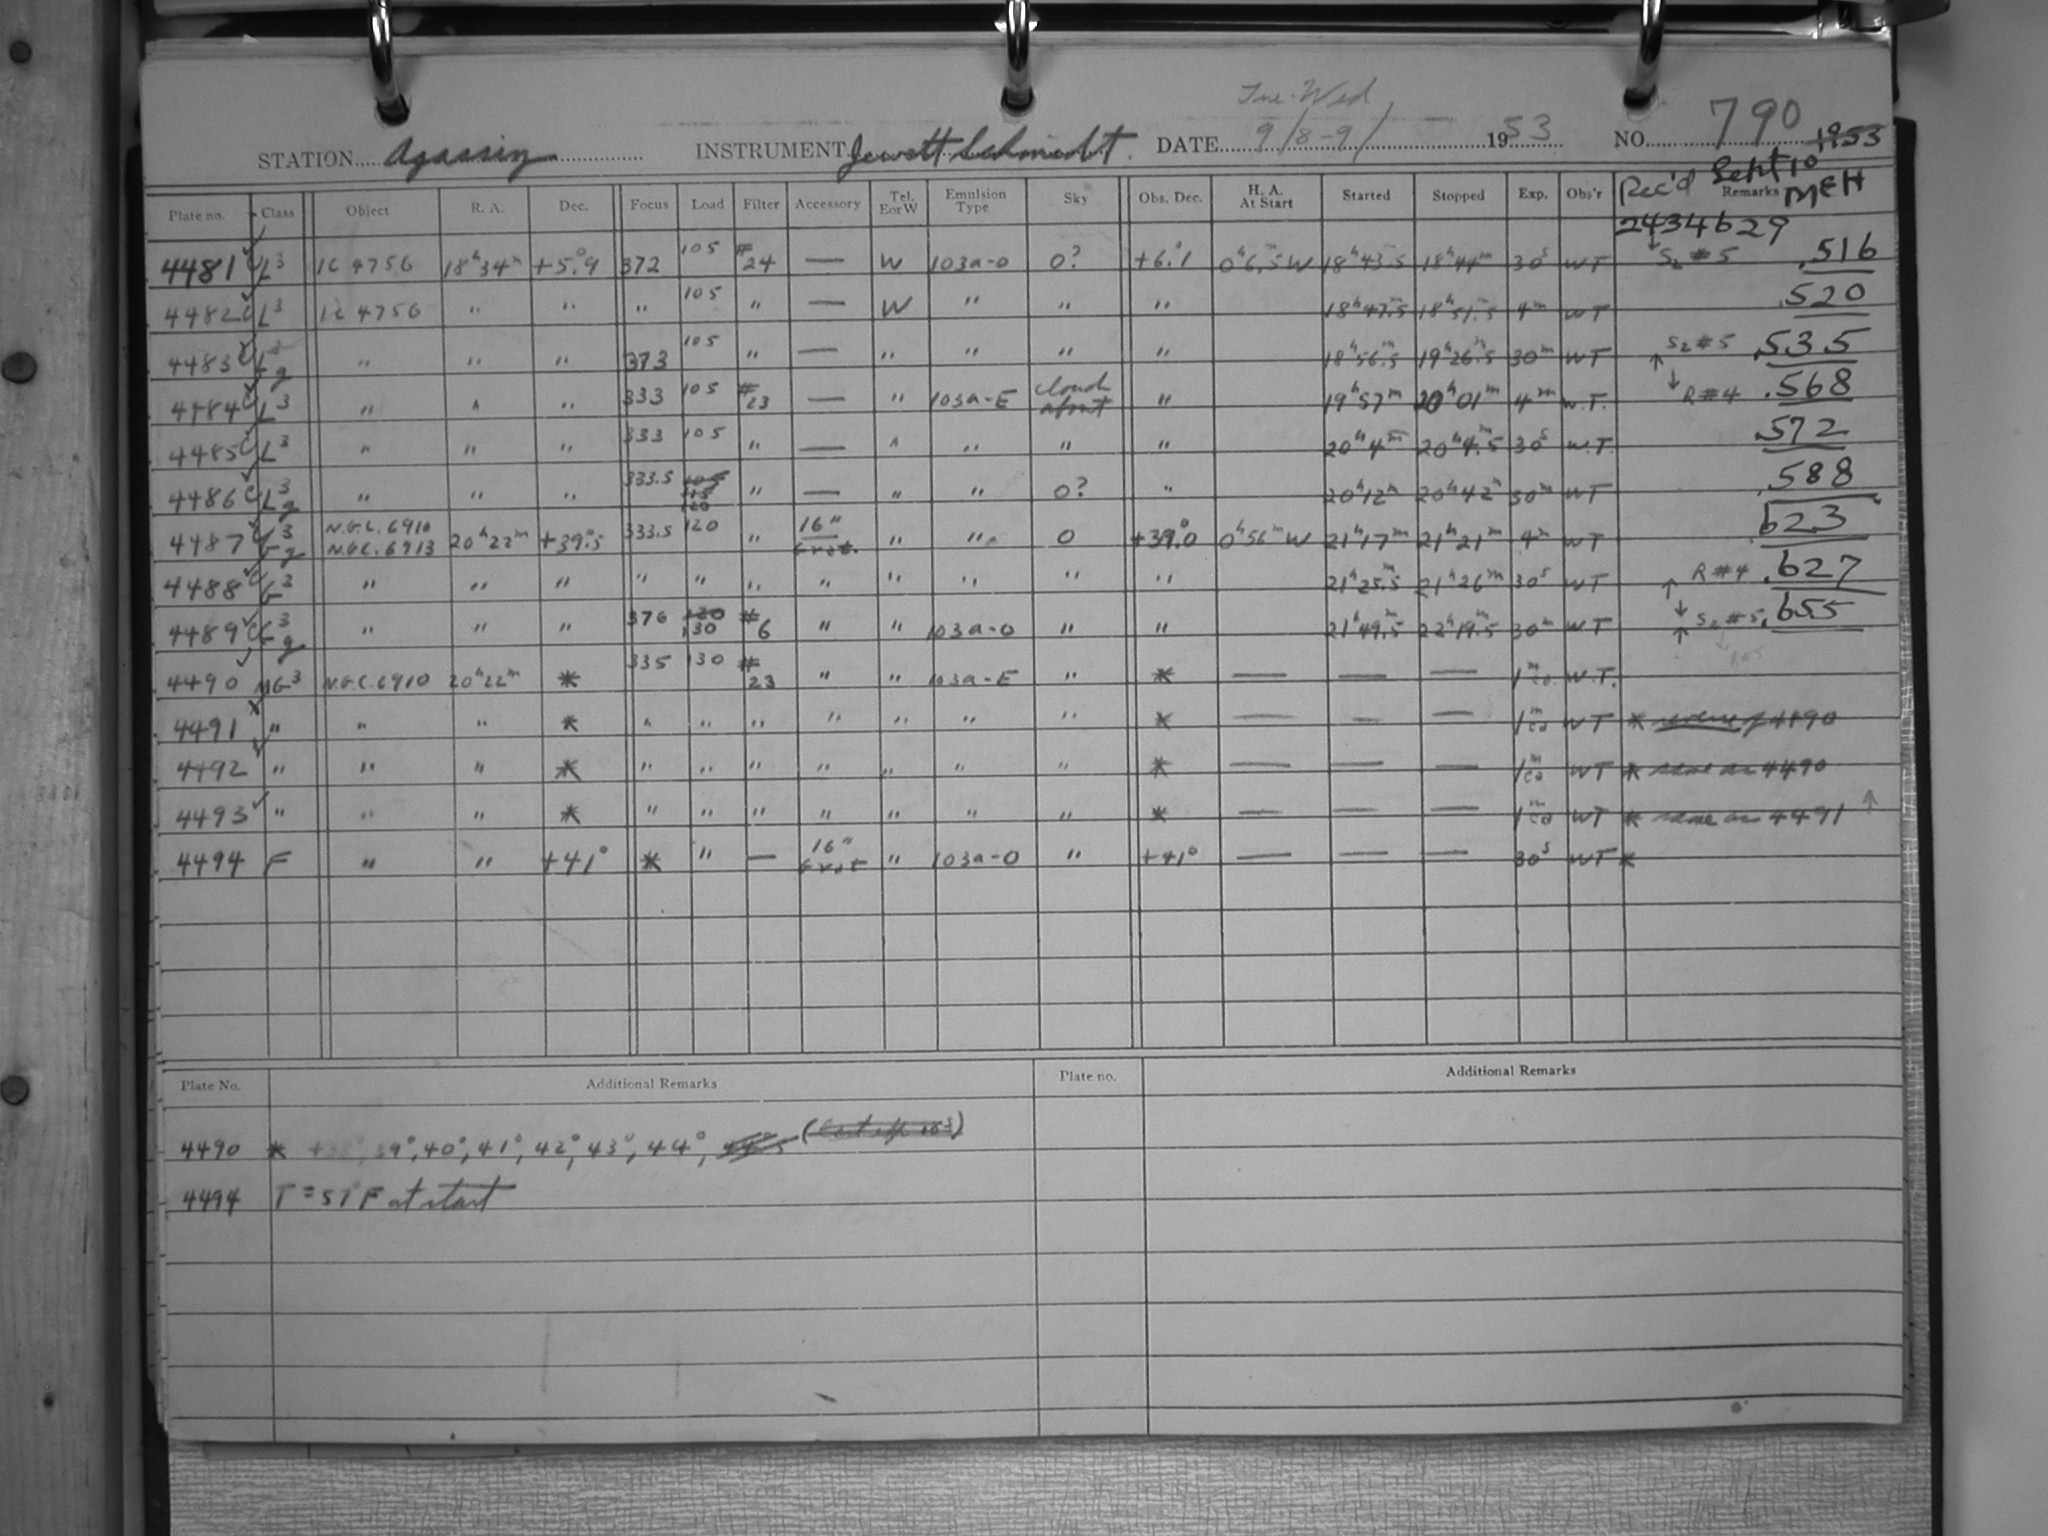 Tue-Wed
STATION Agassiz INSTRUMENT Jewett Schmidt. DATE 9/8-9/ 1953 NO. 790 1953
Rec'd Sept 10 MEH
Plate no. Class Object R. A. Dec. Focus Load Filter Accessory Tel. E or W Emulsion Type Sky Obs. Dec. H. A. At Start Started Stopped Exp. Obs'r Remarks
2434629
4481 L3 IC 4756 18h34m +5°.9 372 105 #24 — W 103a-O 0? +6°.1 0h6m.5W 18h43m.5 18h44m 30s WT ↓ S2 #5 .516
4482 L3 IC 4756 " " " 105 " — W " " " 18h47m.5 18h51m.5 4m WT .520
4483 L3g " " " 373 105 " — " " " " 18h56m.5 19h26m.5 30m WT ↑ S2 #5 .535
4484 L3 " " " 333 105 #23 — " 103a-E cloud about " 19h57m 20h01m 4m W.T. ↓ R#4 .568
4485 L3 " " " 333 105 " — " " " " 20h4m 20h4m.5 30s W.T. .572
4486 L3g " " " 333.5 105 115 120 " — " " 0? " 20h12m 20h42m 30m WT .588
4487 G3g N.G.C. 6910 N.G.C. 6913 20h22m +39°.5 333.5 120 " 16" 6 rot. " " 0 +39°.0 0h56mW 21h17m 21h21m 4m WT .623
4488 G3 " " " " " " " " " " " 21h25m.5 21h26m 30s WT ↑ R#4 .627
4489 G3g " " " 376 120 130 #6 " " 103a-O " " 21h49m.5 22h19m.5 30m WT ↓ ↑ S2 #5 .655
4490 MG3 N.G.C. 6910 20h22m * 335 130 #23 " " 103a-E " * — — — 1m ea. W.T.
4491 " " " * " " " " " " " * — — — 1m ea WT * reverse of 4490
4492 " " " * " " " " " " " * — — — 1m ea WT * same as 4490
4493 " " " * " " " " " " " * — — — 1m ea WT * same as 4491 ↑
4494 F " " +41° * " — 16" 6 rot " 103a-O " +41° — — — 30s WT *
Plate No. Additional Remarks Plate no. Additional Remarks
4490 * +38°, 39°, 40°, 41°, 42°, 43°, 44°,
4494 T = 51°F at start